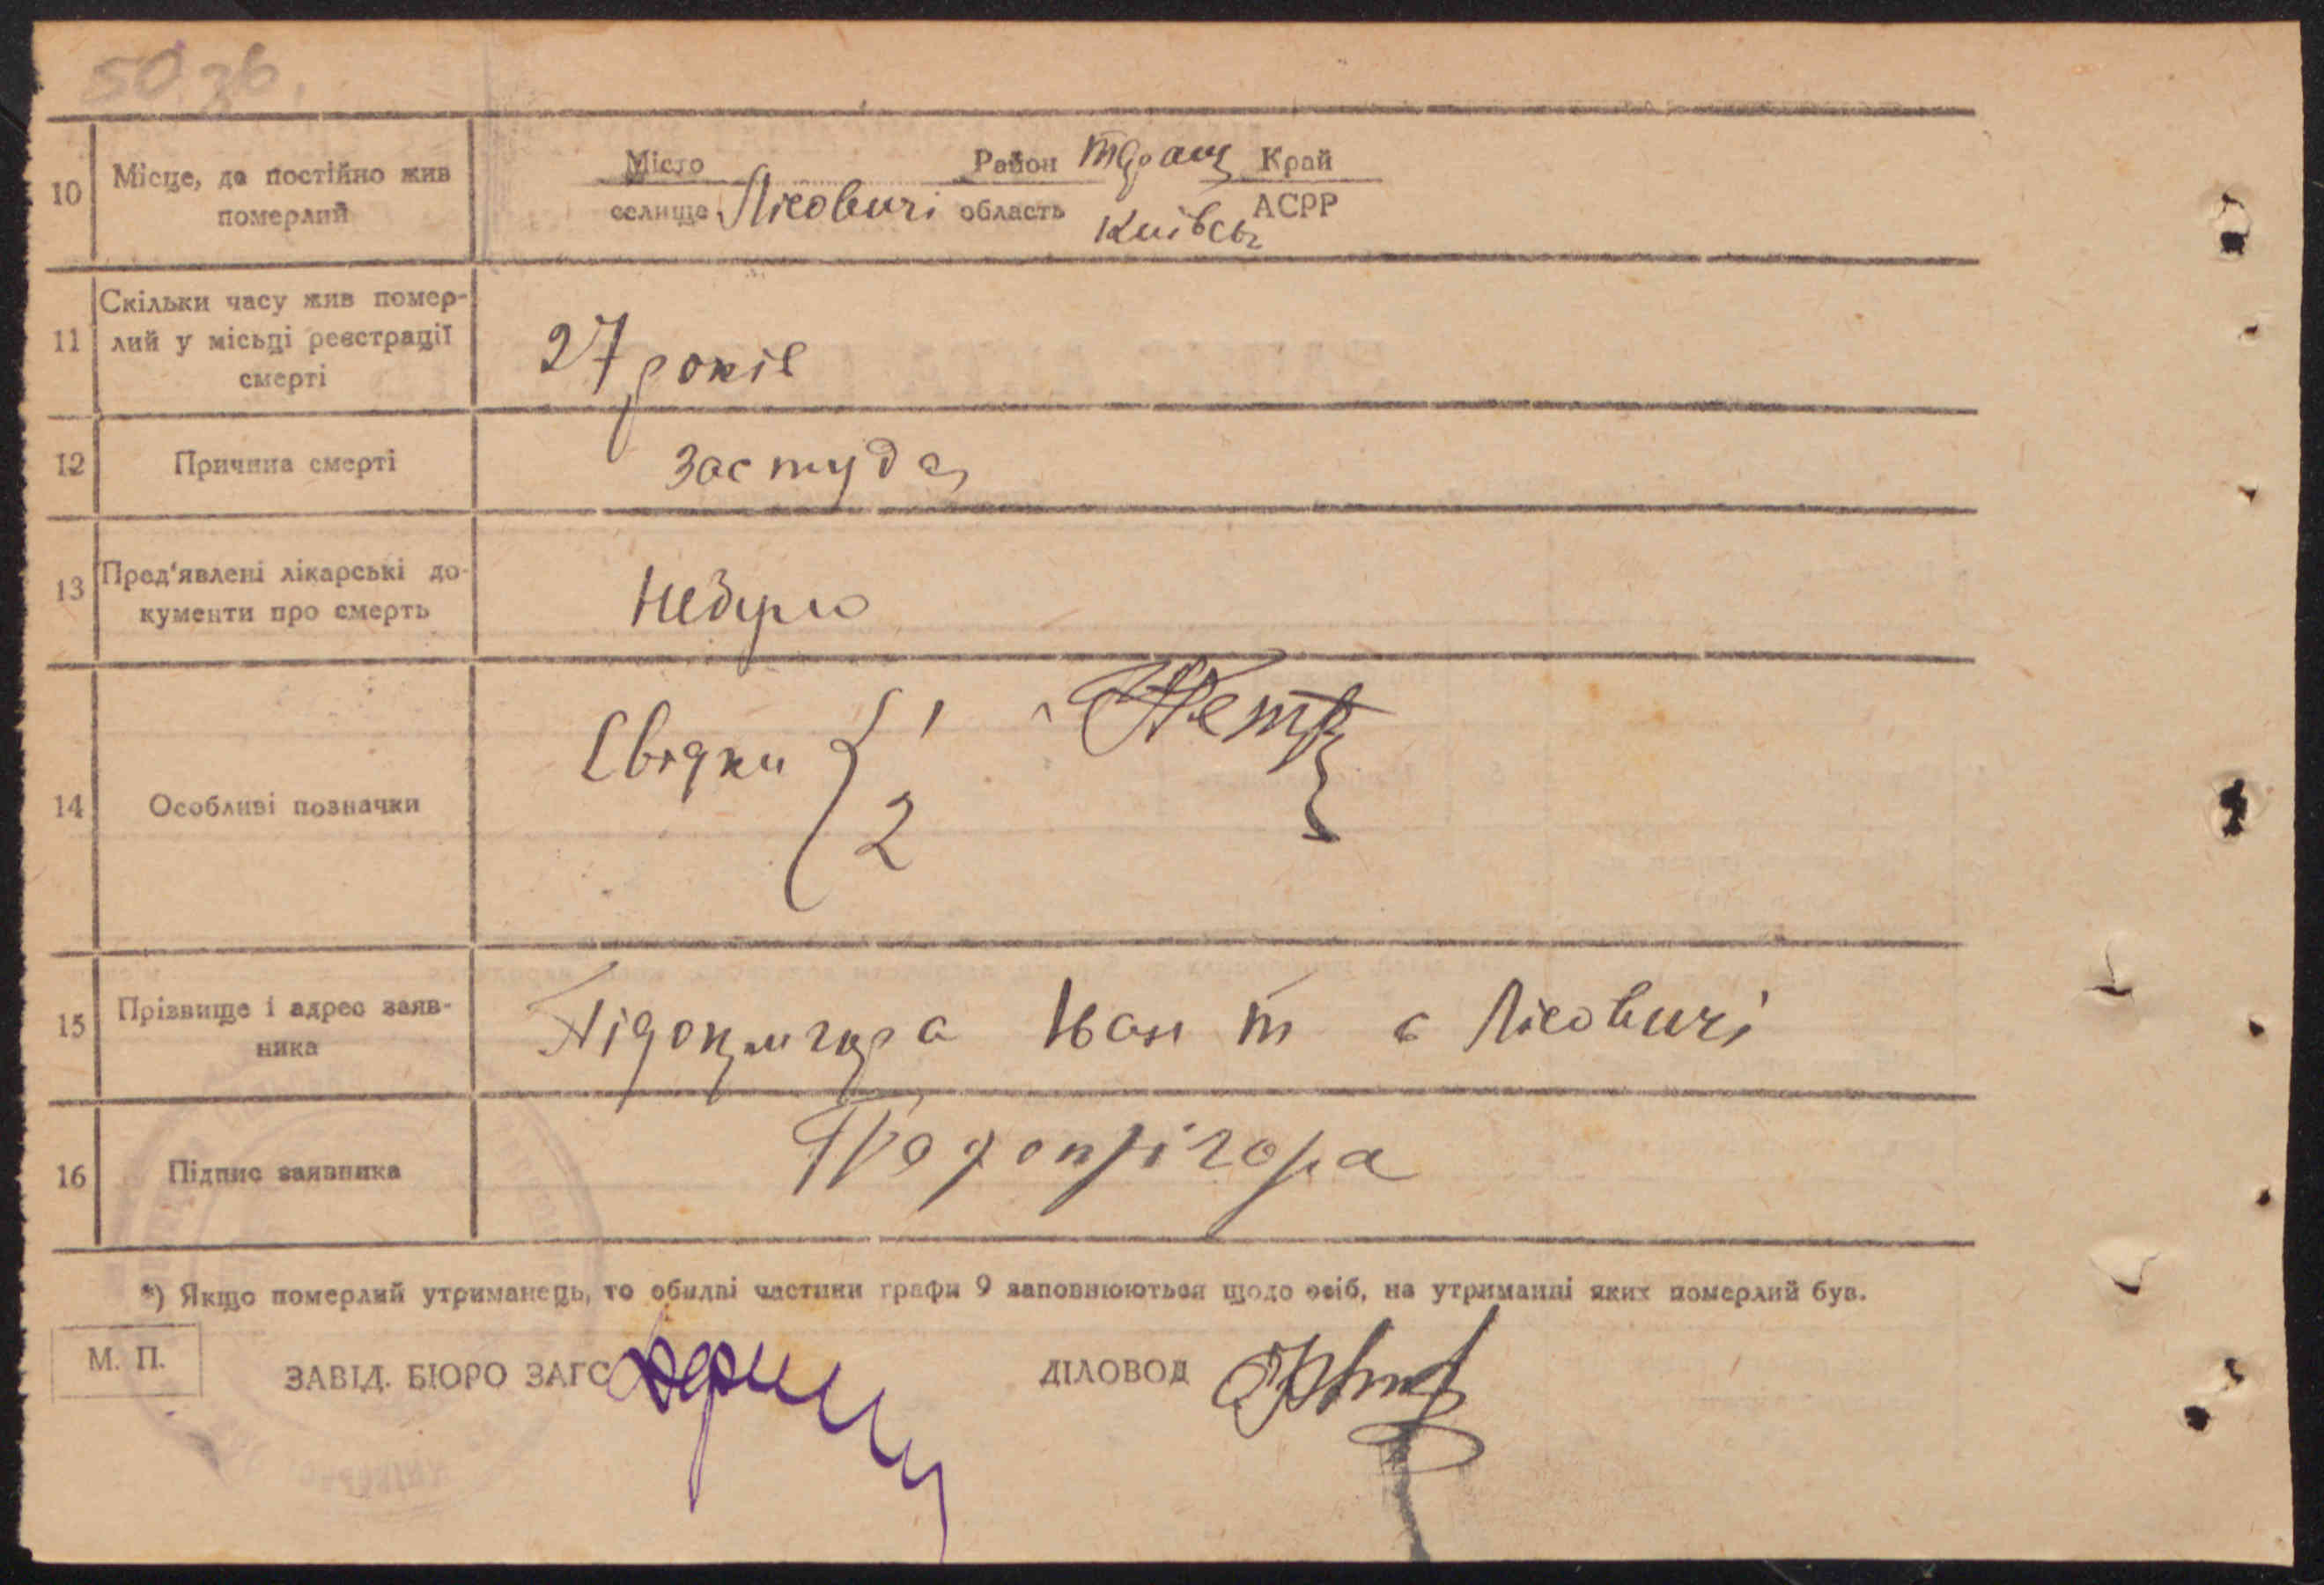 50 зв.
10 Місце, де постійно жив померлий
Місто Район Таращ Край
селище Лісовичі область Київськ АСРР
11 Скільки часу жив помер-
лий у місьці реєстрації
смерті
27 років
12 Причина смерті застуда
13 Пред'явлені лікарські до-
кументи про смерть
Небуло
14 Особливі позначки
Свідки { 1
2
15 Прізвище і адрес заяв-
ника
Підопригора Іван Т с Лісовичі
16 Підпис заявника Підопрігора
*) Якщо померлий утриманець, то обидві частини графи 9 заповнюються щодо осіб, на утриманні яких померлий був.
М. П.
ЗАВІД. БЮРО ЗАГС ДІЛОВОД